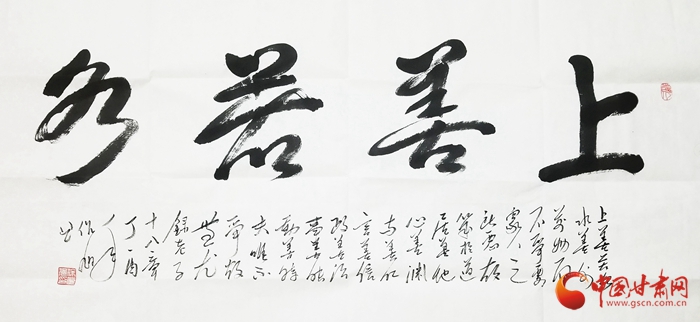 上善若水
上善若
水善利
万物而
不争处
众人之
所恶故
几於道
居善地
心善渊
与善仁
言善信
政善治
事善能
动善时
夫唯不
争故
无尤
录老子
十八章
丁酉
中国甘肃网
www.gscn.com.cn